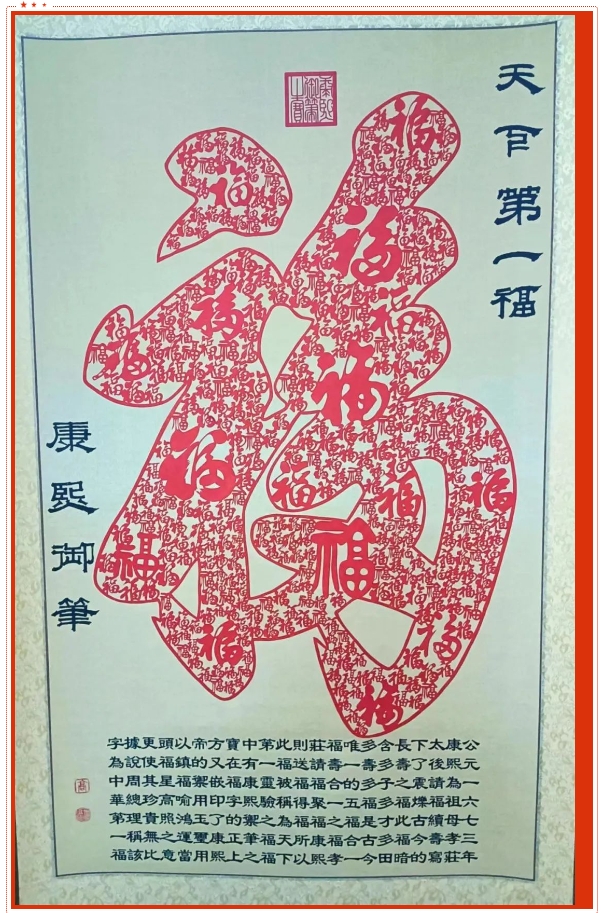 天下第一福
康熙御筆
公元一六七三年
康熙為祖母孝莊
太後請福續壽寫
下了震爍古今的
長壽之福此福暗
含多子多才多田
多壽多福是福今
唯一的五福古一
福壽福一之合孝
莊請合聚福康熙
則送福得福所以
此福被稱為天下
第一靈驗之福福
中有康熙禦筆之
寶在福字的正上
方又嵌印了康熙
帝的禦用玉璽用
以福福喻鴻運當
頭鎮星高照之意
更使其珍貴無比
據說周總理稱該
字為中華第一福
福